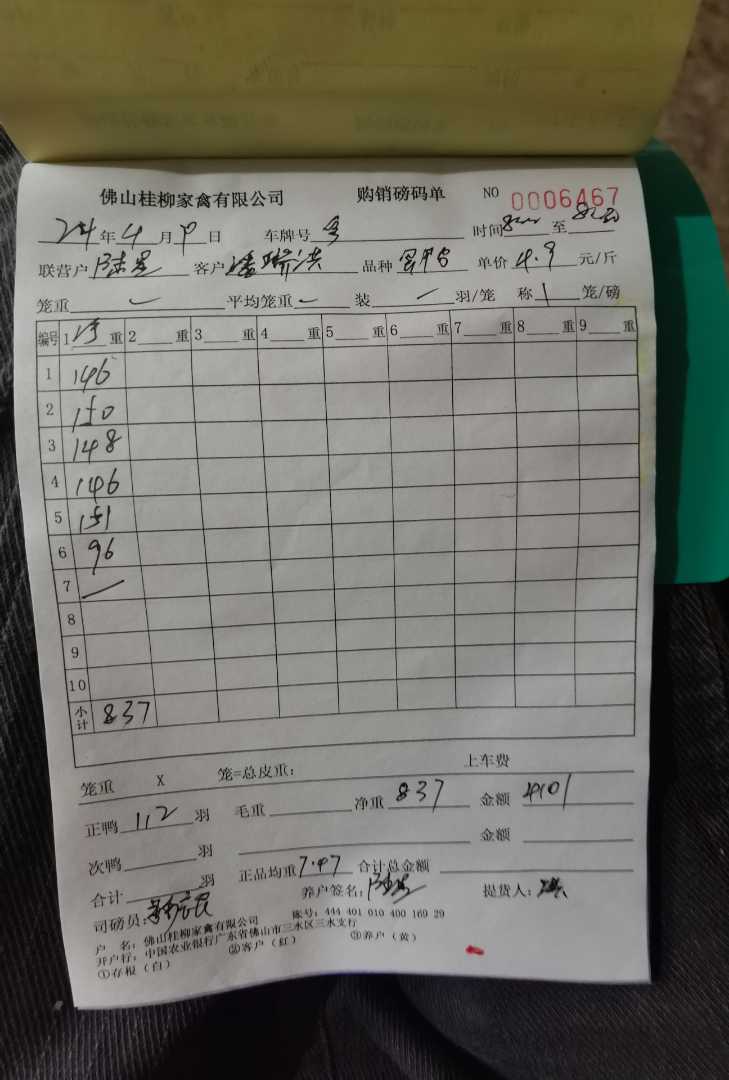 佛山桂柳家禽有限公司 购销磅码单 NO 0006467
24年4月 日 车牌号 时间 至
联营户 客户 品种 单价4.9元/斤
笼重 平均笼重 装 羽/笼 称1笼/磅
编号 1 重 2 重 3 重 4 重 5 重 6 重 7 重 8 重 9 重
1 146
2 150
3 148
4 146
5 151
6 96
7
8
9
10
小计 837
笼重 X 笼=总皮重: 上车费
正鸭112羽 毛重 净重837 金额4101
次鸭 羽 金额
合计 羽 正品均重7.47 合计总金额
司磅员: 养户签名: 提货人:
户 名: 佛山桂柳家禽有限公司 账号: 444 401 010 400 169 29
开户行: 中国农业银行广东省佛山市三水区三水支行
①存根(白) ②客户(红) ③养户(黄)